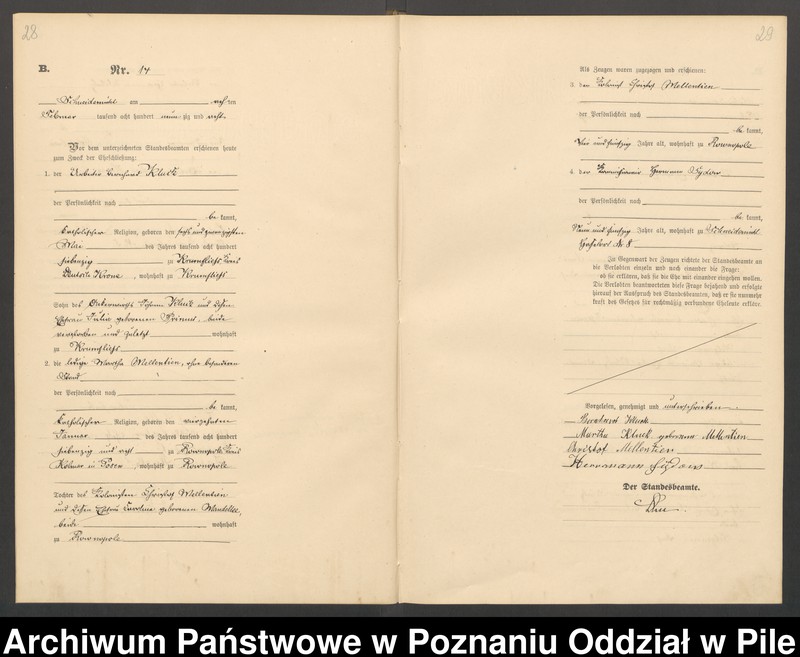 28
B.
Nr. 14
Schneidemühl am ten
Februar tausend acht hundert neun zig und acht
Vor dem unterzeichneten Standesbeamten erschienen heute
zum Zweck der Eheschließung:
1. der Arbeiter Bernhard Kluck
der Persönlichkeit nach
be kannt,
katholischer Religion, geboren den sechs und zwanzigsten
Mai des Jahres tausend acht hundert
siebenzig zu Kreis
Deutsch Krone, wohnhaft zu
Sohn des Kluck und dessen
Ehefrau Julia geborenen beide
verstorben und zuletzt wohnhaft
zu
2. die ledige Martha Mellentien, ohne besonderen
Stand
der Persönlichkeit nach
be kannt,
katholischer Religion, geboren den vierzehnten
Januar des Jahres tausend acht hundert
siebenzig und acht zu Rownopole Kreis
Kolmar in Posen, wohnhaft zu Rownopole
Tochter des Kolonisten Christof Mellentien
und dessen Ehefrau geborenen
beide wohnhaft
zu Rownopole
29
Als Zeugen waren zugezogen und erschienen:
3. der Kolonist Christof Mellentien
der Persönlichkeit nach
be kannt,
und fünfzig Jahre alt, wohnhaft zu Rownopole
4. der Hermann Sydow
der Persönlichkeit nach
be kannt,
und fünfzig Jahre alt, wohnhaft zu Schneidemühl
Nr. 8
In Gegenwart der Zeugen richtete der Standesbeamte an
die Verlobten einzeln und nach einander die Frage:
ob sie erklären, daß sie die Ehe mit einander eingehen wollen.
Die Verlobten beantworteten diese Frage bejahend und erfolgte
hierauf der Ausspruch des Standesbeamten, daß er sie nunmehr
kraft des Gesetzes für rechtmäßig verbundene Eheleute erkläre.
Vorgelesen, genehmigt und unterschrieben
Bernhard Kluck
Martha Kluck geborene Mellentien
Christof Mellentien
Herrmann Sydow
Der Standesbeamte.
Archiwum Państwowe w Poznaniu Oddział w Pile